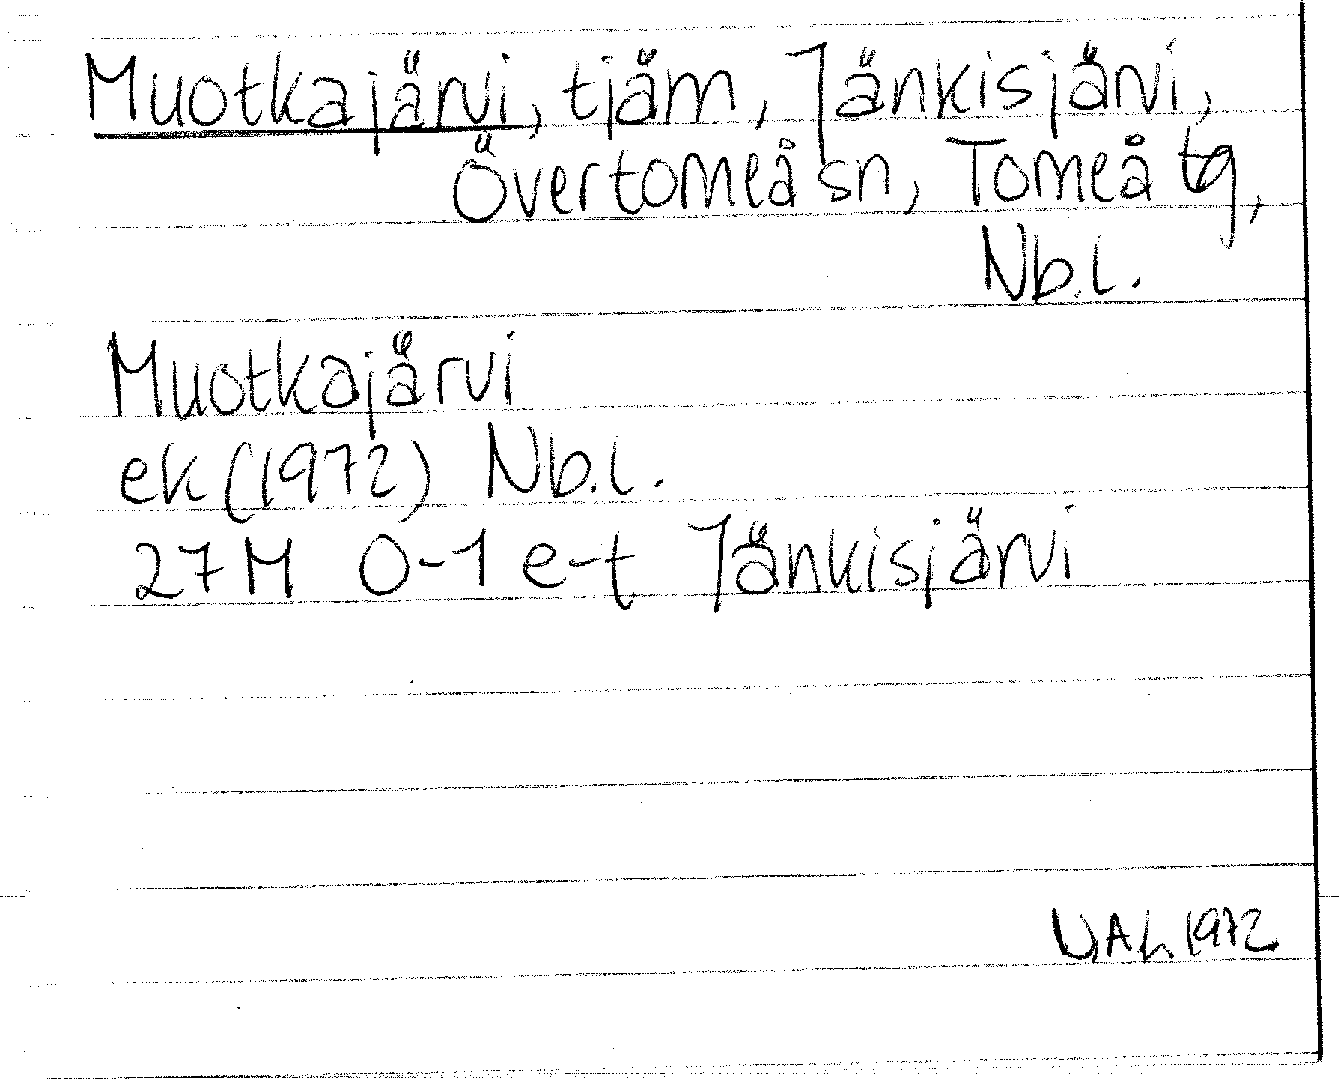 Muotkajärvi, tjäm, Jänkisjärvi,
Övertorneå sn, Torneå tg,
Nb.l.
Muotkajärvi
ek (1972) Nb.l.
27M 0-1 e-t Jänkisjärvi
UAh 1972